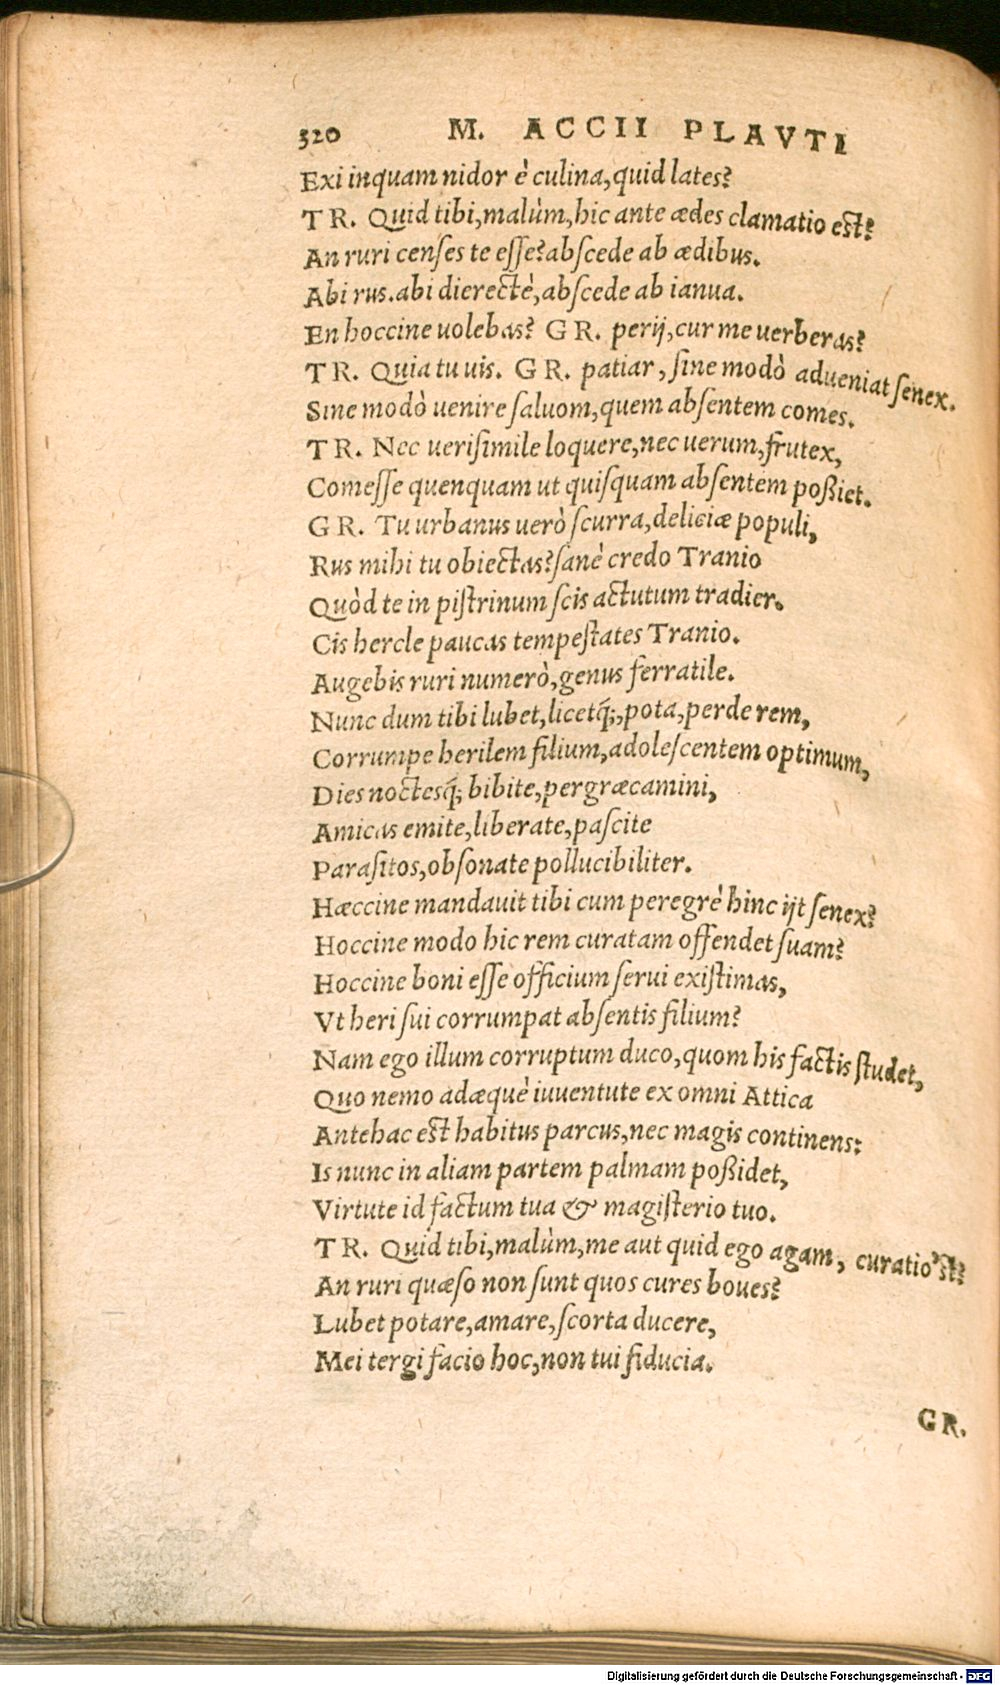 320 M. ACCII PLAVTI
Exi inquam nidor è culina, quid lates?
TR. Quid tibi, malùm, hic ante ædes clamatio est?
An ruri censes te esse? abscede ab ædibus.
Abi rus. abi dierectè, abscede ab ianua.
En hoccine uolebas? GR. perij, cur me uerberas?
TR. Quia tu uis. GR. patiar, sine modò adueniat senex.
Sine modò uenire saluom, quem absentem comes.
TR. Nec uerisimile loquere, nec uerum, frutex,
Comesse quenquam ut quisquam absentem poßiet.
GR. Tu urbanus uerò scurra, deliciæ populi,
Rus mihi tu obiectas? sanè credo Tranio
Quòd te in pistrinum scis actutum tradier.
Cis hercle paucas tempestates Tranio.
Augebis ruri numerò, genus ferratile.
Nunc dum tibi lubet, licetq́;, pota, perde rem,
Corrumpe herilem filium, adolescentem optimum,
Dies noctesq́; bibite, pergræcamini,
Amicas emite, liberate, pascite
Parasitos, obsonate pollucibiliter.
Hæccine mandauit tibi cum peregrè hinc ijt senex?
Hoccine modo hic rem curatam offendet suam?
Hoccine boni esse officium serui existimas,
Vt heri sui corrumpat absentis filium?
Nam ego illum corruptum duco, quom his factis studet,
Quo nemo adæquè iuuentute ex omni Attica
Antehac est habitus parcus, nec magis continens:
Is nunc in aliam partem palmam poßidet,
Virtute id factum tua & magisterio tuo.
TR. Quid tibi, malùm, me aut quid ego agam, curatio'st?
An ruri quæso non sunt quos cures boues?
Lubet potare, amare, scorta ducere,
Mei tergi facio hoc, non tui fiducia.
GR.
Digitalisierung gefördert durch die Deutsche Forschungsgemeinschaft - DFG